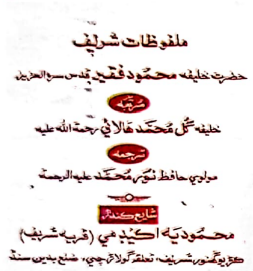 ملفوظات شريف
حضرت خليفه محمود فقير قدس سره العزيز
مرتبه
خليفه گل محمد هالائي رحمة الله عليه
ترجمه
مولوي حافظ نور محمد عليه الرحمة
شايع ڪندڙ
محموديه اڪيڊمي (قريه شريف)
ڪڙيو گنهور شريف، تعلقه گولاڙچي، ضلع بدين سنڌ